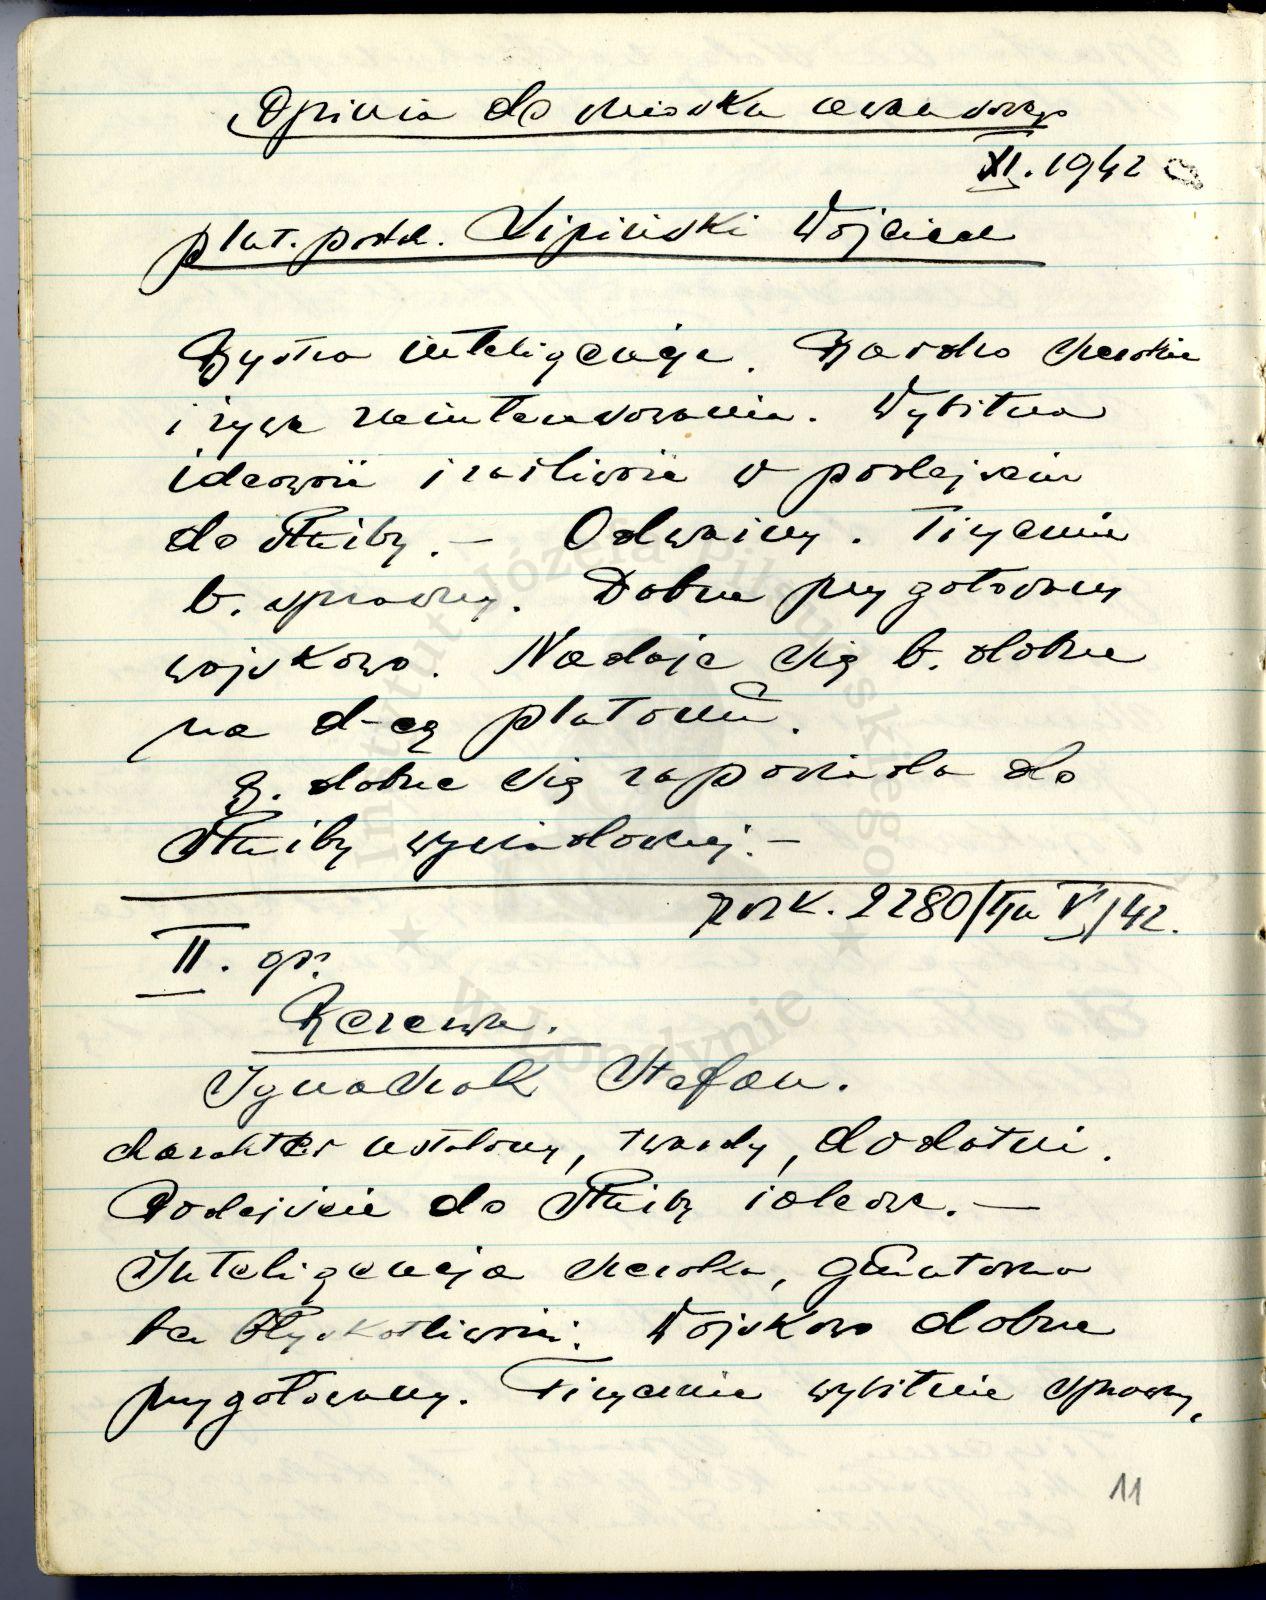 Opinia do wniosku awansowego
XI. 1942
plut. podch. Lipiński Wojciech
Bystra inteligencja. Bardzo szerokie
i żywe zainteresowania. Wybitna
ideowość i żarliwość w podejściu
do służby. – Odważny. Fizycznie
b. sprawny. Dobrze przygotowany
wojskowo. Nadaje się b. dobrze
na d-cę plutonu.
B. dobrze się zapowiada do
służby wywiadowczej. –
rozk. 2280/ V/42.
II. gr.
Ignaszak Stefan.
charakter ustalony, twardy, dodatni.
Podejście do służby ideowe. –
Inteligencja szeroka, gruntowna
bez błyskotliwości. Wojskowo dobrze
przygotowany. Fizycznie wybitnie sprawny,
11
Instytut Józefa Piłsudskiego
w Londynie